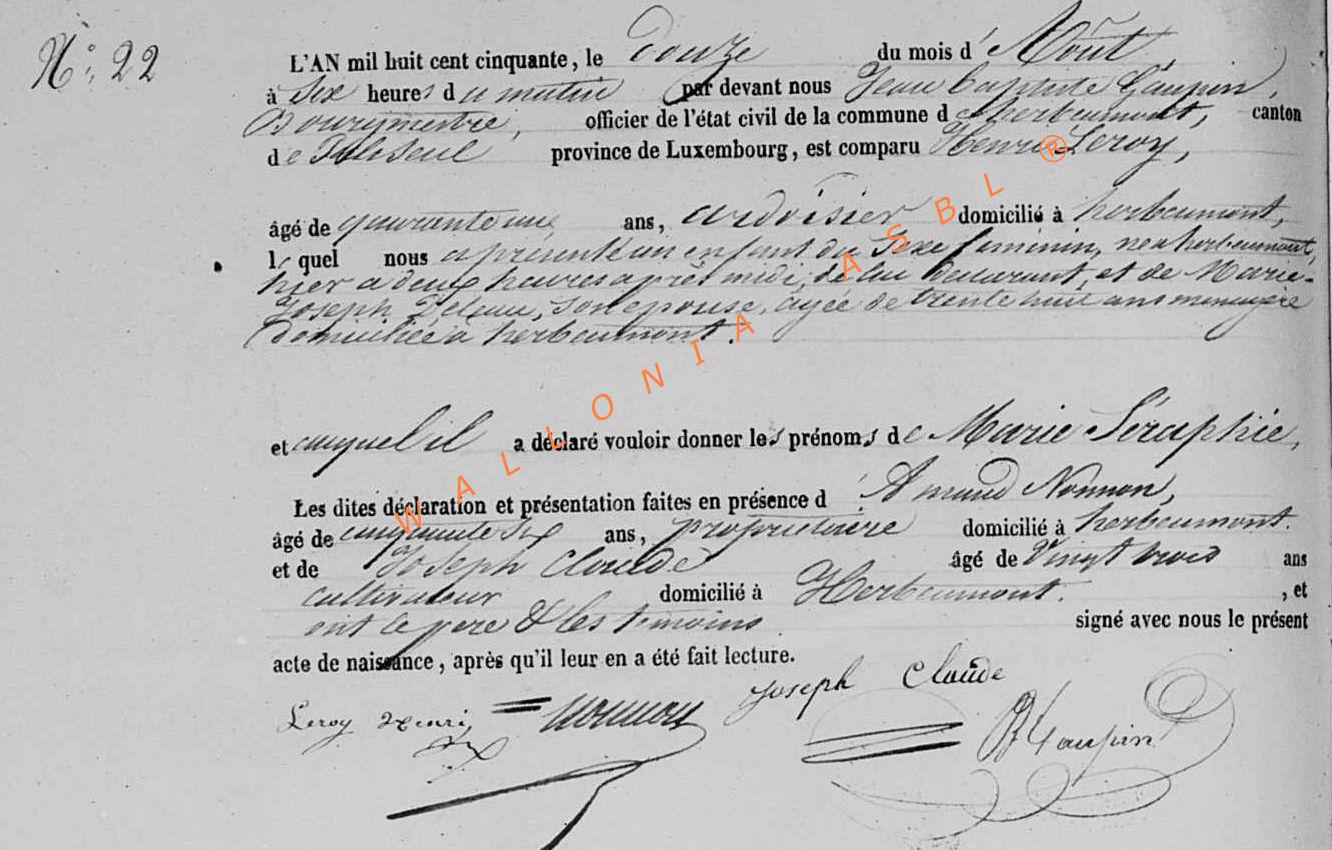 N° 22
L'AN mil huit cent cinquante, le douze du mois d' Août,
à Six heures du matin par devant nous Jean baptiste Gaupin,
Bourgmestre, officier de l'état civil de la commune de herbeumont, canton
de Paliseul province de Luxembourg, est comparu Henri Leroy,
âgé de quarante un ans, ardoisier domicilié à herbeumont,
lequel nous a présenté un enfant du Sexe féminin, né a herbeumont,
hier a deux heures après midi, de lui Déclarant, et de Marie-
Joseph son épouse, agée de trente huit ans menagère
domiciliée à herbeumont.
et auquel il a déclaré vouloir donner les prénoms de Marie Séraphie,
Les dites déclaration et présentation faites en présence d' Amand Nonnon,
âgé de cinquante six ans, propriétaire domicilié à herbeumont.
et de Joseph Claude âgé de Vingt trois ans
cultivateur domicilié à Herbeumont. , et
ont le père & les témoins signé avec nous le présent
acte de naissance, après qu'il leur en a été fait lecture.
Leroy Henri Nonnon Joseph Claude Gaupin
WALLONIA ASBL ®